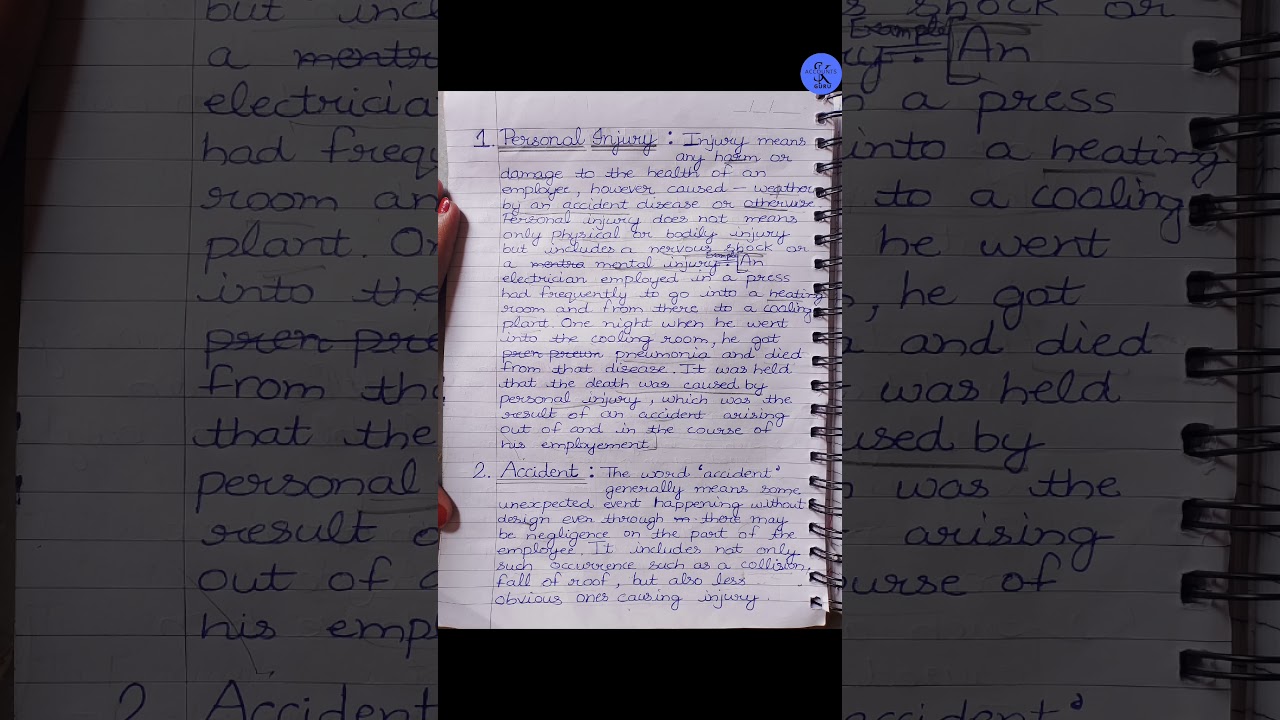 GJ
ACCOUNTS
GURU
1. Personal Injury : Injury means
any harm or
damage to the health of an
employee, however caused – weather
by an accident disease or otherwise.
Personal injury does not means
only physical or bodily injury
but includes a nervous shock or
Example
a mentra mental injury : [An
electrician employed in a press
had frequently to go into a heating
room and from there to a cooling
plant. One night when he went
into the cooling room, he got
pren preum pneumonia and died
from that disease. It was held
that the death was caused by
personal injury, which was the
result of an accident arising
out of and in the course of
his employement]
2. Accident : The word 'accident'
generally means some
unexpected event happening without
design even through in there may
be negligence on the part of the
employee. It includes not only
such occurrence such as a collision,
fall of roof, but also less
obvious ones causing injury.